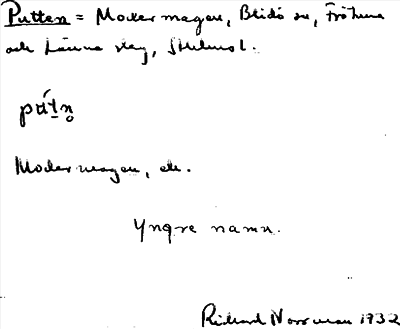 Putten = Modermagen, Blidö sn, Frötuna
och Länna skg, Sthlms l.
pút̠n̥
Modermagen, etc.
Yngre namn.
Rickard Norrman 1932